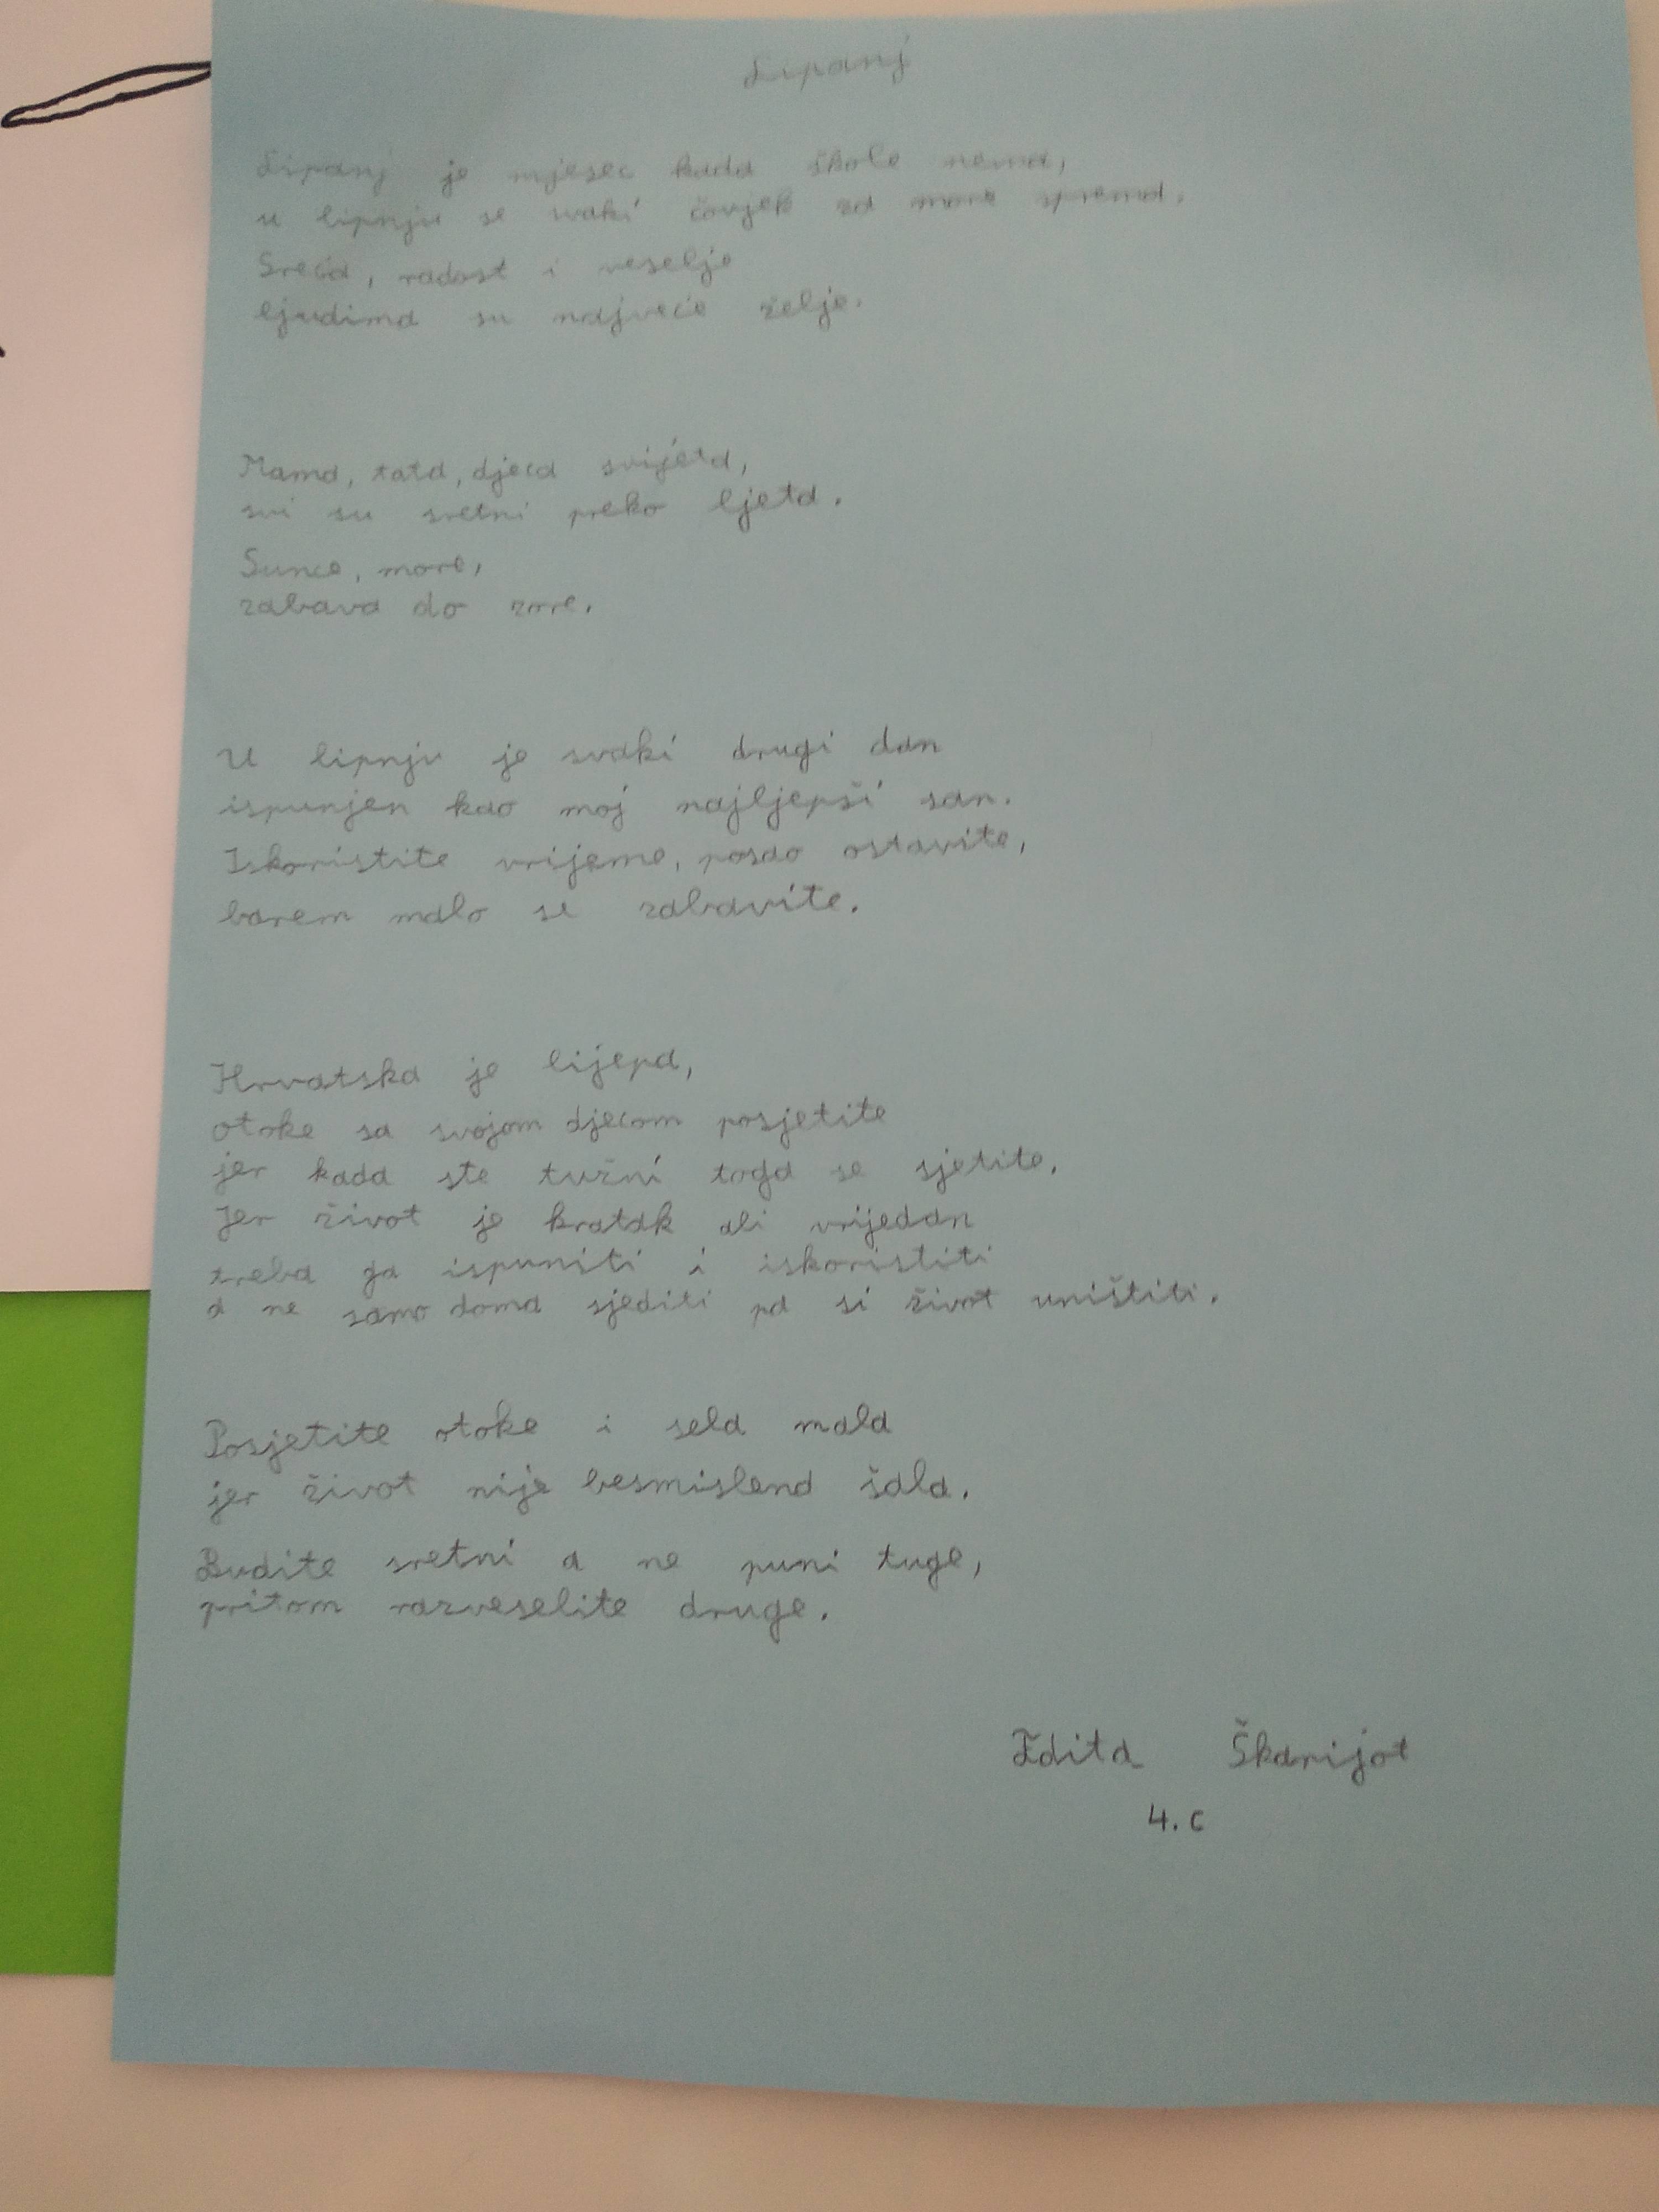 Lipanj
Lipanj je mjesec kada škole nema,
u lipnju se svaki čovjek za more sprema.
Sreća, radost i veselje
ljudima su najveće želje.
Mama, tata, djeca svijeta,
svi su sretni preko ljeta.
Sunce, more,
zabava do zore.
U lipnju je svaki drugi dan
ispunjen kao moj najljepši san.
Iskoristite vrijeme, posao ostavite,
barem malo se zabavite.
Hrvatska je lijepa,
otoke sa svojom djecom posjetite
jer kada ste tužni toga se sjetite.
Jer život je kratak ali vrijedan
treba ga ispuniti i iskoristiti
a ne samo doma sjediti pa si život uništiti.
Posjetite otoke i sela mala
jer život nije besmislena šala.
Budite sretni a ne puni tuge,
pritom razveselite druge.
Edita Škarijot
4. c